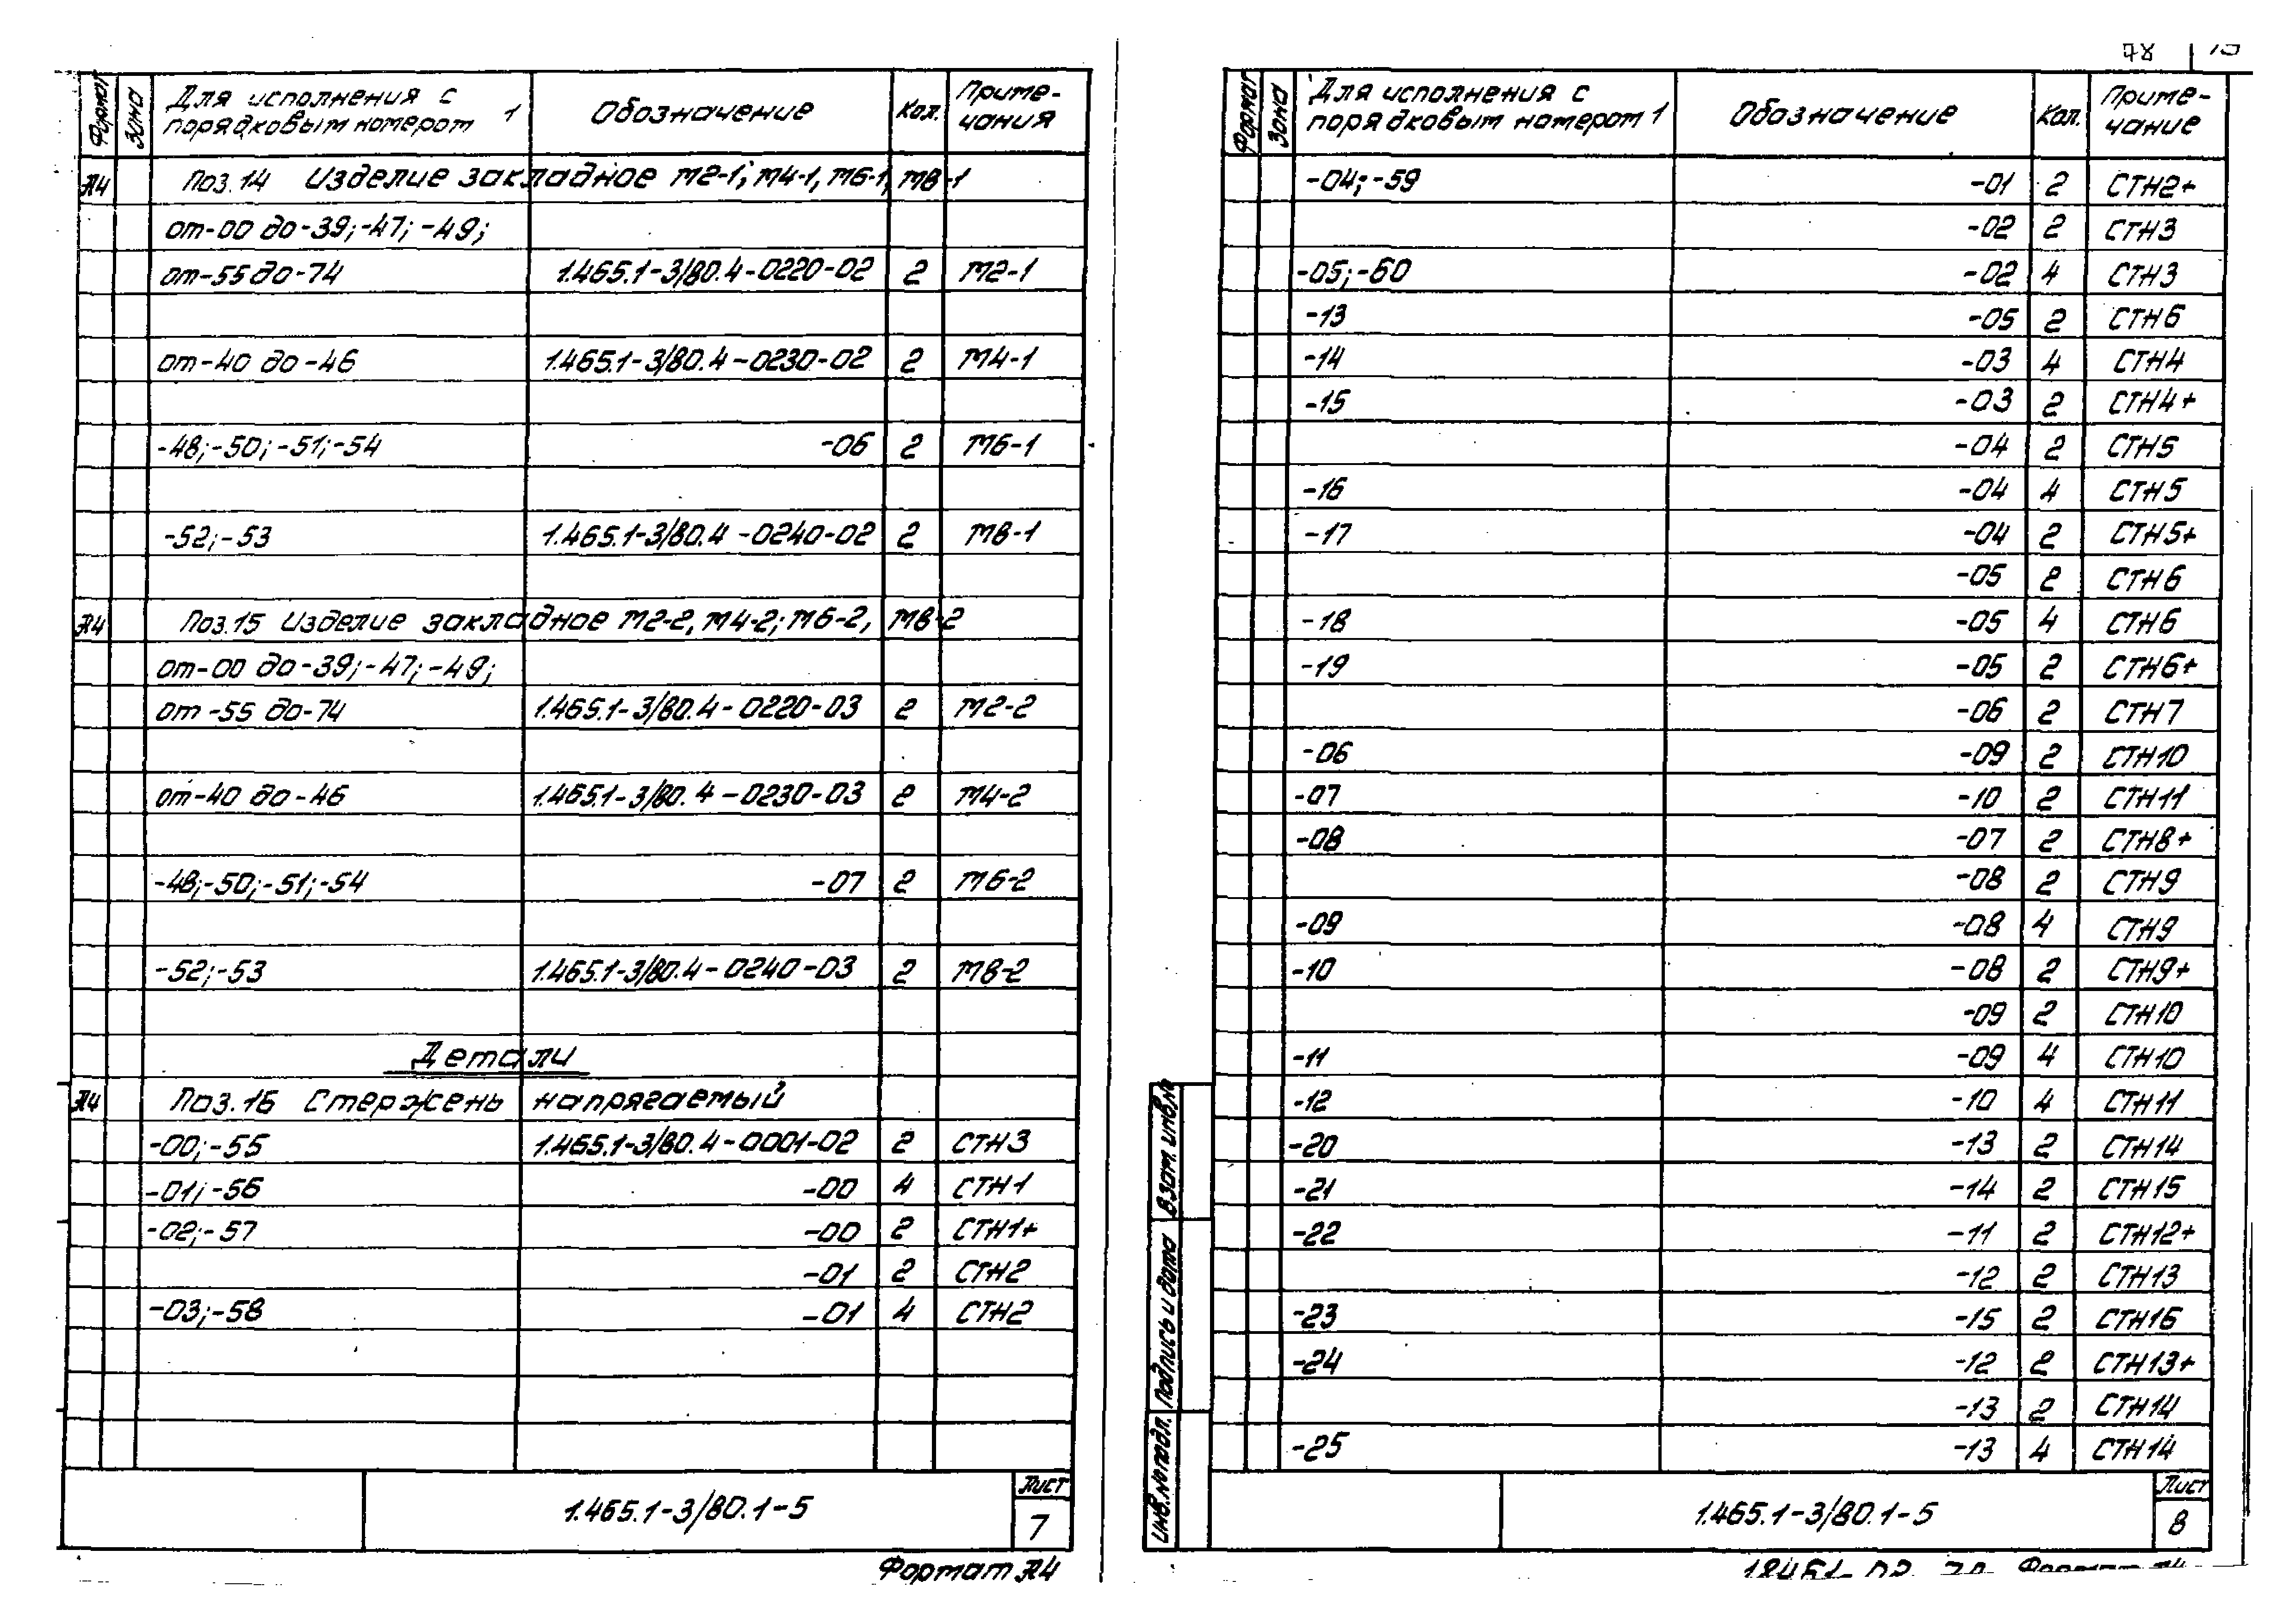 Формат Зона Для исполнения с порядковым номером 1 Обозначение Кол. Примечания
А4 Поз.14 Изделие закладное М2-1; М4-1, М6-1, М8-1
от-00 до-39;-47;-49;
от-55 до-74 1.465.1-3/80.4-0220-02 2 М2-1
от-40 до-46 1.465.1-3/80.4-0230-02 2 М4-1
-48;-50;-51;-54 -06 2 М6-1
-52;-53 1.465.1-3/80.4-0240-02 2 М8-1
А4 Поз.15 Изделие закладное М2-2, М4-2; М6-2, М8-2
от-00 до-39;-47;-49;
от-55 до-74 1.465.1-3/80.4-0220-03 2 М2-2
от-40 до-46 1.465.1-3/80.4-0230-03 2 М4-2
-48;-50;-51;-54 -07 2 М6-2
-52;-53 1.465.1-3/80.4-0240-03 2 М8-2
Детали
А4 Поз.16 Стержень напрягаемый
-00;-55 1.465.1-3/80.4-0001-02 2 СТН3
-01;-56 -00 4 СТН1
-02;-57 -00 2 СТН1+
-01 2 СТН2
-03;-58 -01 4 СТН2
1.465.1-3/80.1-5
Лист
7
Формат А4
78
Формат Зона Для исполнения с порядковым номером 1 Обозначение Кол. Примечание
-04;-59 -01 2 СТН2+
-02 2 СТН3
-05;-60 -02 4 СТН3
-13 -05 2 СТН6
-14 -03 4 СТН4
-15 -03 2 СТН4+
-04 2 СТН5
-16 -04 4 СТН5
-17 -04 2 СТН5+
-05 2 СТН6
-18 -05 4 СТН6
-19 -05 2 СТН6+
-06 2 СТН7
-06 -09 2 СТН10
-07 -10 2 СТН11
-08 -07 2 СТН8+
-08 2 СТН9
-09 -08 4 СТН9
-10 -08 2 СТН9+
-09 2 СТН10
-11 -09 4 СТН10
-12 -10 4 СТН11
-20 -13 2 СТН14
-21 -14 2 СТН15
-22 -11 2 СТН12+
-12 2 СТН13
-23 -15 2 СТН16
-24 -12 2 СТН13+
-13 2 СТН14
-25 -13 4 СТН14
Взам. инв.№
Подпись и дата
Инв.№ подл.
1.465.1-3/80.1-5
Лист
8
Формат А4